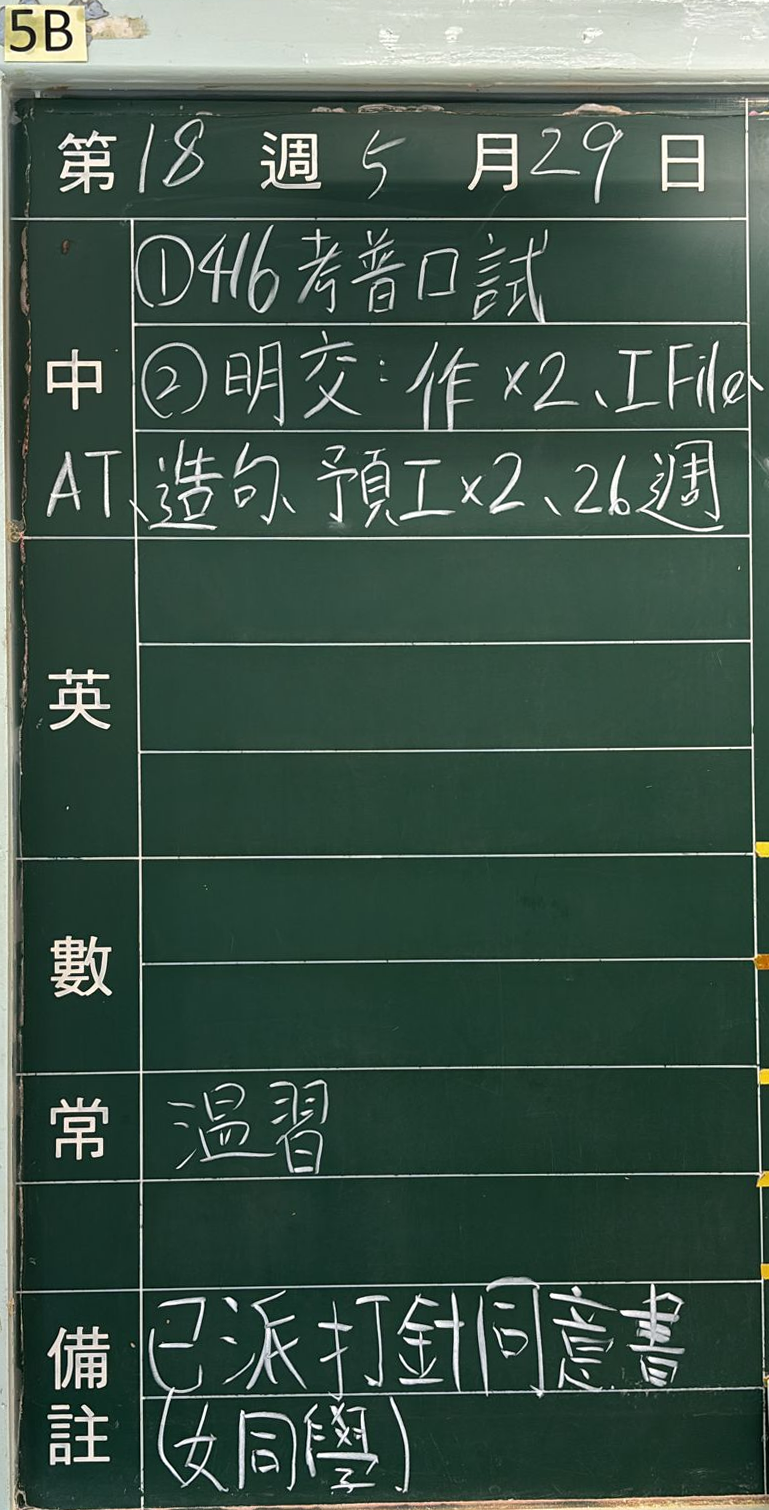 5B
第18週5月29日
中
①4/6考普口試
②明交：作×2、工File、
AT、造句、預工×2、26週
英
數
常
溫習
備註
已派打針同意書
(女同學)